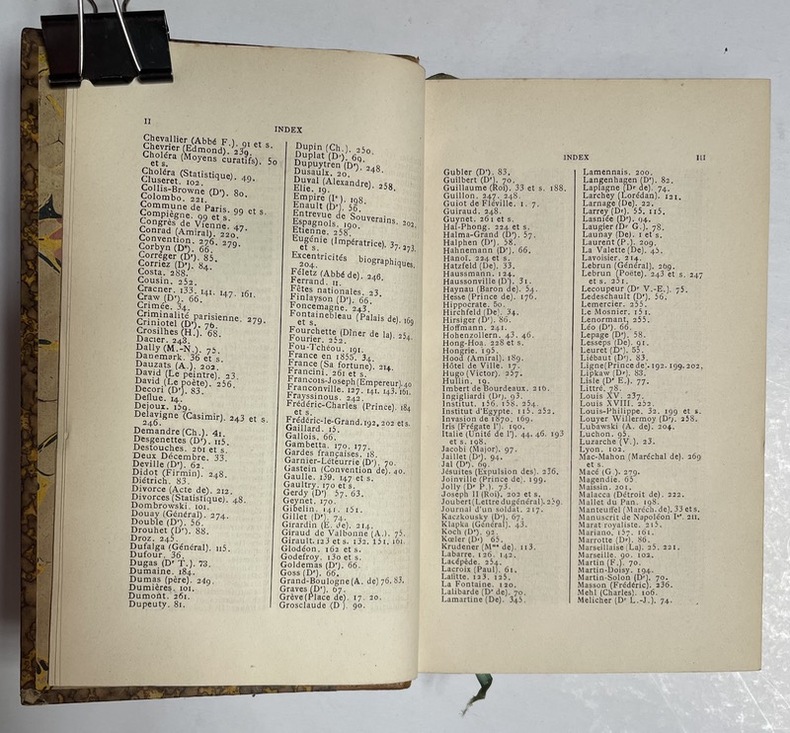 II
INDEX
Chevallier (Abbé F.). 91 et s.
Chevrier (Edmond). 239.
Choléra (Moyens curatifs). 50
et s.
Choléra (Statistique). 49.
Cluseret. 102.
Collis-Browne (Dr). 80.
Colombo. 221.
Commune de Paris. 99 et s.
Compiègne. 99 et s.
Congrès de Vienne. 47.
Conrad (Amiral). 220.
Convention. 276. 279.
Corbyn (Dr). 66.
Corréger (Dr). 85.
Corriez (Dr). 84.
Costa. 288.
Cousin. 252.
Cracner. 133. 141. 147. 161.
Craw (Dr). 66.
Crimée. 34.
Criminalité parisienne. 279.
Criniotel (Dr). 76.
Crosilhes (H.). 68.
Dacier. 248.
Dally (M.-N.). 75.
Danemark. 36 et s.
Dauzats (A.). 202.
David (Le peintre). 23.
David (Le poète). 256.
Decori (Dr). 83.
Deflue. 14.
Dejoux. 159.
Delavigne (Casimir). 243 et s.
246.
Demandre (Ch.). 41.
Desgenettes (Dr). 115.
Destouches. 261 et s.
Deux Décembre. 33.
Deville (Dr). 62.
Didot (Firmin). 248.
Diétrich. 83.
Divorce (Acte de). 212.
Divorces (Statistique). 48.
Dombrowski. 101.
Douay (Général). 274.
Double (Dr). 56.
Drouhet (Dr). 88.
Droz. 245.
Dufalga (Général). 115.
Dufour. 36.
Dugas (Dr T.). 73.
Dumaine. 184.
Dumas (père). 249.
Dumières. 101.
Dumont. 261.
Dupeuty. 81.
Dupin (Ch.). 250.
Duplat (Dr). 69.
Dupuytren (Dr). 248.
Dusaulx. 20.
Duval (Alexandre). 258.
Elie. 19.
Empire (Ir). 198.
Enault (Dr). 56.
Entrevue de Souverains. 202.
Espagnols. 190.
Etienne. 258.
Eugénie (Impératrice). 37. 273.
et s.
Excentricités biographiques.
204.
Féletz (Abbé de). 246.
Ferrand. 11.
Fêtes nationales. 23.
Finlayson (Dr). 66.
Foncemagne. 243.
Fontainebleau (Palais de). 169
et s.
Fourchette (Dîner de la). 254.
Fourier. 252.
Fou-Tchéou. 191.
France en 1855. 34.
France (Sa fortune). 214.
Francini. 261 et s.
François-Joseph (Empereur). 40
Franconville. 127. 141. 143. 161.
Frayssinous. 242.
Frédéric-Charles (Prince). 184
et s.
Frédéric-le-Grand. 192, 202 et s.
Gaillard. 15.
Gallois. 66.
Gambetta. 170. 177.
Gardes françaises. 18.
Garnier-Léteurrie (Dr). 70.
Gastein (Convention de). 40.
Gaulle. 139. 147 et s.
Gaultry. 170 et s.
Gerdy (Dr). 57. 63.
Geynet. 170.
Gibelin. 141. 151.
Gillet (Dr). 74.
Girardin (E. de). 214.
Giraud de Valbonne (A.). 75.
Girault. 123 et s. 132. 151. 161.
Glodéon. 162 et s.
Godefroy. 130 et s.
Goldemas (Dr). 66.
Goss (Dr). 66.
Grand-Boulogne (A. de) 76. 83.
Graves (Dr). 67.
Grève (Place de). 17. 20.
Grosclaude (D ). 90.
INDEX
III
Gubler (Dr). 83.
Guilbert (Dr). 70.
Guillaume (Roi). 33 et s. 188.
Guillon. 247. 248.
Guiot de Fléville. 1. 7.
Guiraud. 248.
Guynet. 261 et s.
Haï-Phong. 224 et s.
Halma-Grand (Dr). 57.
Halphen (Dr). 58.
Hahnemann (Dr). 66.
Hanoï. 224 et s.
Hatzfeld (De). 33.
Haussmann. 124.
Haussonville (Dr). 31.
Haynau (Baron de). 54.
Hesse (Prince de). 176.
Hippocrate. 50.
Hirchfeld (De). 34.
Hirsiger (Dr). 86.
Hoffmann. 241.
Hohenzollern. 43. 46.
Hong-Hoa. 228 et s.
Hongrie. 195.
Hood (Amiral). 189.
Hôtel de Ville. 17.
Hugo (Victor). 257.
Hullin. 19.
Imbert de Bourdeaux. 216.
Ingigliardi (Dr). 93.
Institut. 156. 158. 254.
Institut d'Egypte. 115. 252.
Invasion de 1870. 169.
Iris (Frégate l'). 190.
Italie (Unité de l'). 44. 46. 193
et s. 198.
Jacobi (Major). 97.
Jaillet (Dr). 94.
Jal (Dr). 69.
Jésuites (Expulsion des). 236.
Joinville (Prince de). 199.
Jolly (Dr P.). 73.
Joseph II (Roi). 202 et s.
Joubert (Lettre du général). 259.
Journal d'un soldat. 217.
Kaczkousky (Dr). 67.
Klapka (Général). 43.
Koch (Dr). 92.
Kœler (Dr). 65.
Krudener (Mme de). 113.
Labarre. 126. 142.
Lacépède. 254.
Lacroix (Paul). 61.
Lafitte. 123. 125.
La Fontaine. 120.
Lalibarde (Dr de). 70.
Lamartine (De). 345.
Lamennais. 200.
Langenhagen (Dr). 82.
Laplagne (Dr de). 74.
Larchey (Lorédan). 121.
Larnage (De). 22.
Larrey (Dr). 55. 115.
Lasniée (Dr). 94.
Laugier (Dr G.). 78.
Launay (De). 1 et s.
Laurent (P.). 209.
La Valette (De). 45.
Lavoisier. 214.
Lebrun (Général). 269.
Lebrun (Poète). 243 et s. 247
et s. 251.
Lecoupeur (Dr V.-E.). 75.
Ledeschault (Dr). 56.
Lemercier. 255.
Le Mosnier. 151.
Lenormant. 255.
Léo (Dr). 66.
Lepage (Dr). 58.
Lesseps (De). 91.
Leuret (Dr). 55.
Liébaut (Dr). 83.
Ligne (Prince de). 192. 199. 202,
Lipkaw (Dr). 83.
Lisle (Dr E.). 77.
Littré. 78.
Louis XV. 237.
Louis XVIII. 252.
Louis-Philippe. 32. 199 et s.
Louyer Villermoy (Dr). 258.
Lubawski (A. de). 204.
Luchon. 95.
Luzarche (V.). 23.
Lyon. 102.
Mac-Mahon (Maréchal de). 269
et s.
Macé (G ). 279.
Magendie. 65
Maissin. 201.
Malacca (Détroit de). 222.
Mallet du Pan. 198.
Manteuffel (Maréch. de). 33 et s.
Manuscrit de Napoléon Ier. 211.
Marat royaliste. 215.
Mariano. 157. 161.
Marrotte (Dr). 86.
Marseillaise (La). 25. 221.
Marseille. 90. 102.
Martin (F.). 70.
Martin-Doisy. 194.
Martin-Solon (Dr). 70.
Masson (Frédéric). 236.
Mehl (Charles). 106.
Melicher (Dr L.-J.). 74.